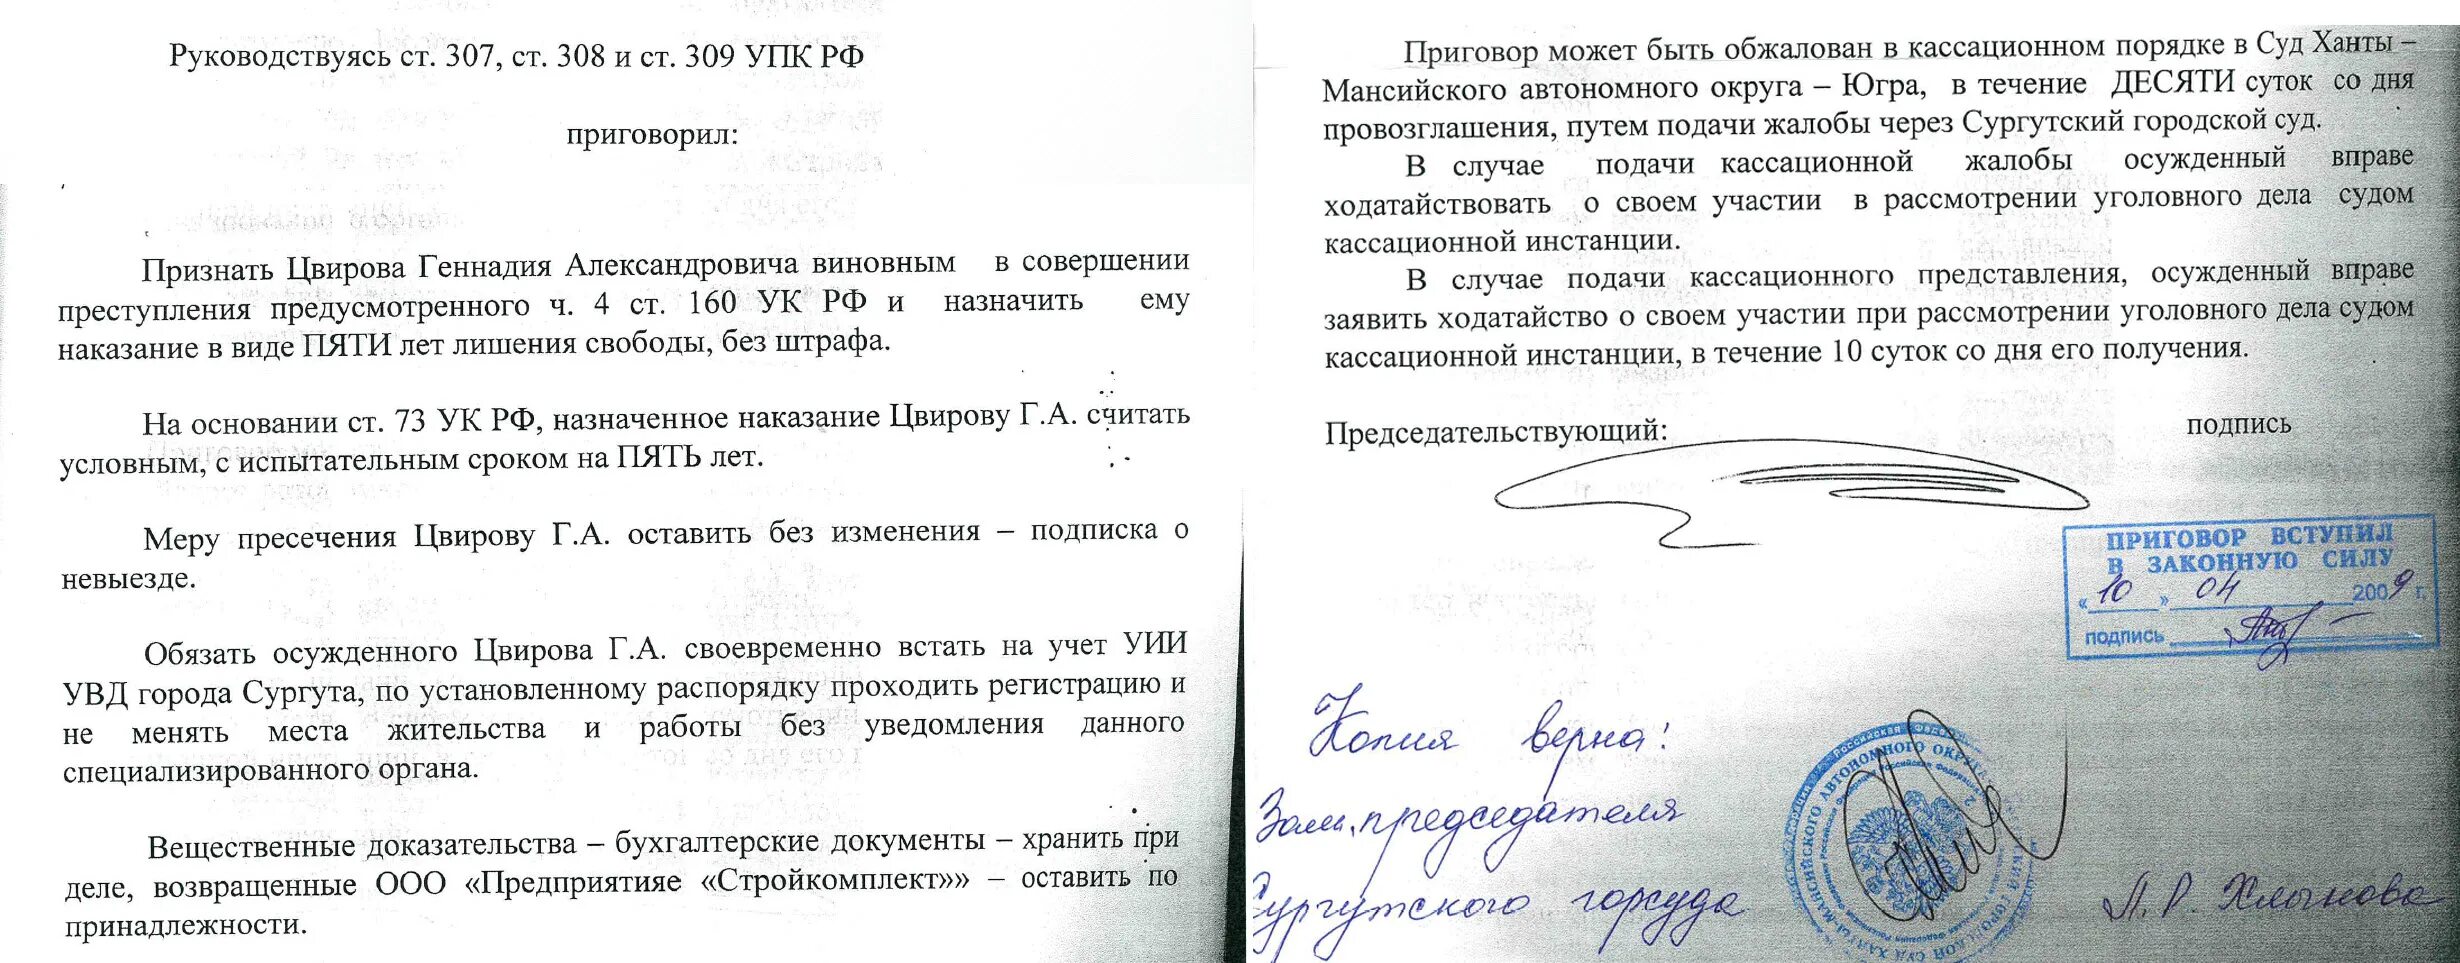 Руководствуясь ст. 307, ст. 308 и ст. 309 УПК РФ
приговорил:
Признать Цвирова Геннадия Александровича виновным в совершении
преступления предусмотренного ч. 4 ст. 160 УК РФ и назначить ему
наказание в виде ПЯТИ лет лишения свободы, без штрафа.
На основании ст. 73 УК РФ, назначенное наказание Цвирову Г.А. считать
условным, с испытательным сроком на ПЯТЬ лет.
Меру пресечения Цвирову Г.А. оставить без изменения – подписка о
невыезде.
Обязать осужденного Цвирова Г.А. своевременно встать на учет УИИ
УВД города Сургута, по установленному распорядку проходить регистрацию и
не менять места жительства и работы без уведомления данного
специализированного органа.
Вещественные доказательства – бухгалтерские документы – хранить при
деле, возвращенные ООО «Предприятияе «Стройкомплект»» – оставить по
принадлежности.
Приговор может быть обжалован в кассационном порядке в Суд Ханты –
Мансийского автономного округа – Югра, в течение ДЕСЯТИ суток со дня
провозглашения, путем подачи жалобы через Сургутский городской суд.
В случае подачи кассационной жалобы осужденный вправе
ходатайствовать о своем участии в рассмотрении уголовного дела судом
кассационной инстанции.
В случае подачи кассационного представления, осужденный вправе
заявить ходатайство о своем участии при рассмотрении уголовного дела судом
кассационной инстанции, в течение 10 суток со дня его получения.
Председательствующий: подпись
ПРИГОВОР ВСТУПИЛ
В ЗАКОННУЮ СИЛУ
«10» 04 2009 г.
подпись
Копия верна:
Зам. председателя
Сургутского горсуда Л.Р. Хлынова